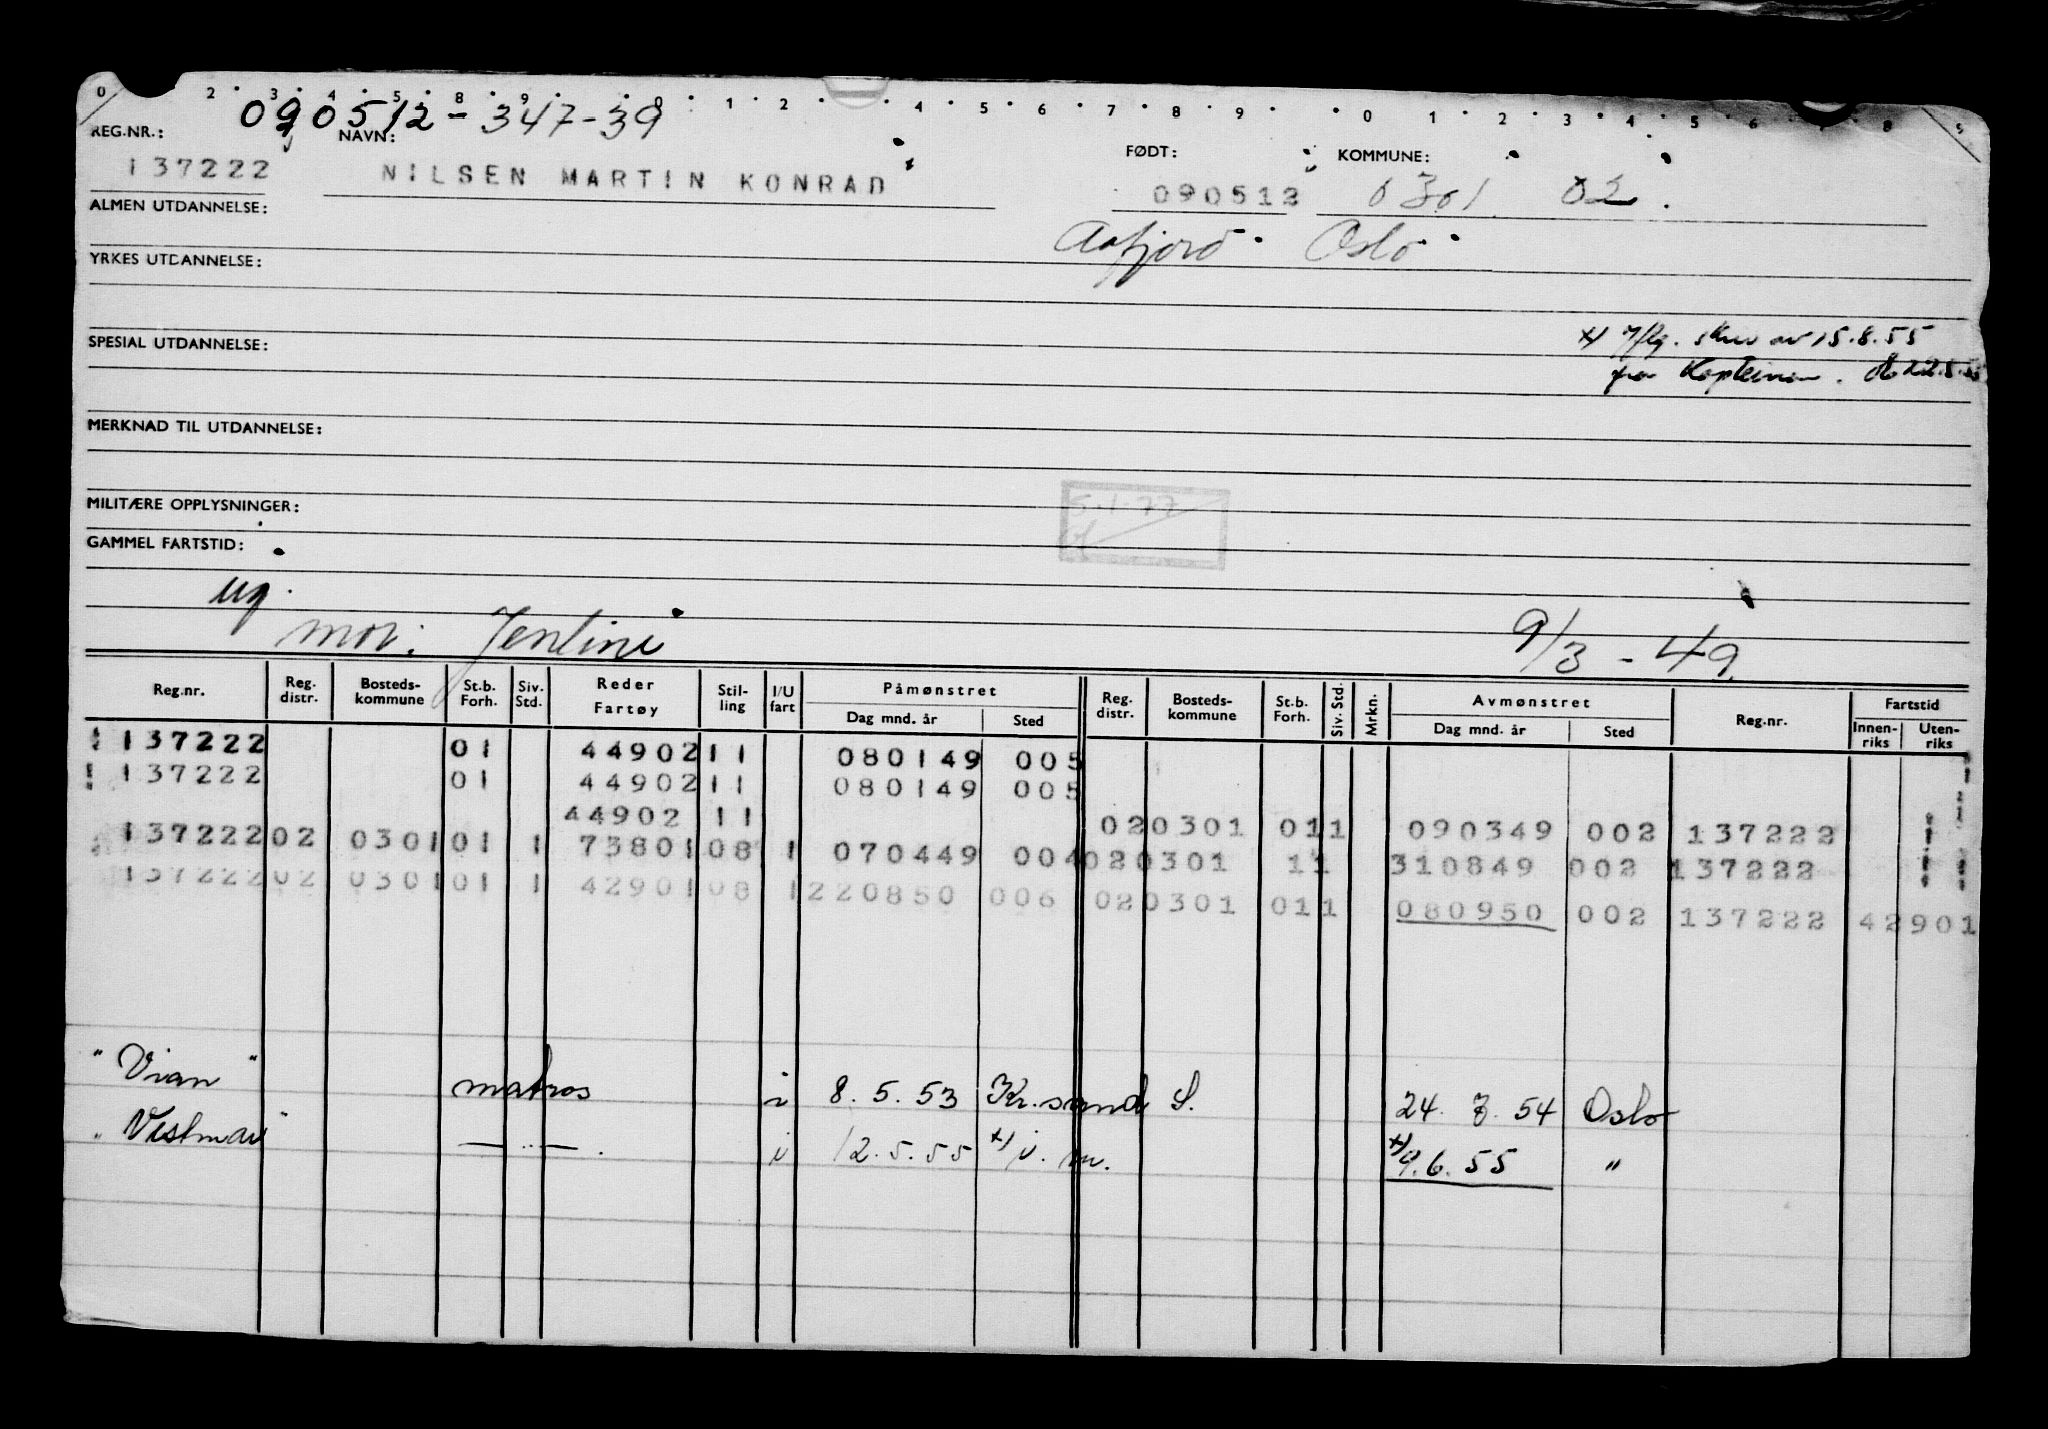 0 2 3 4 5 8 9 0 1 2 4 5 6 7 8 9 0 1 2 3 4 5 6 7 8 9
090512-347-39
REG.NR.: NAVN: FØDT: KOMMUNE:
137222 NILSEN MARTIN KONRAD 090512 0301 02
ALMEN UTDANNELSE:
Aafjord Oslo
YRKES UTDANNELSE:
x) Iflg. skriv av 15.8.55
SPESIAL UTDANNELSE:
fra Kapteinen. 22.8.55
MERKNAD TIL UTDANNELSE:
MILITÆRE OPPLYSNINGER: 5.1.77
GAMMEL FARTSTID:
ug.
mor: Jentine 9/3-49
Reg.nr. Reg. distr. Bosteds- kommune St.b. Forh. Siv. Std. Reder Fartøy Stil- ling I/U fart Påmønstret Reg. distr. Bosteds- kommune St.b. Forh. Siv. Std. Mrkn. Avmønstret Reg.nr. Fartstid
Dag mnd. år Sted Dag mnd. år Sted Innen- riks Uten- riks
137222 01 44902 11 080149 005
137222 01 44902 11 080149 005
44902 11 02 0301 01 1 090349 002 137222
137222 02 0301 01 1 73801 08 1 070449 004 02 0301 1 1 310849 002 137222
137222 02 0301 01 1 42901 08 1 220850 006 02 0301 01 1 080950 002 137222 42901
"Vian" matros i 8.5.53 Kr.sand S. 24. 3. 54 Oslo
"Vestmar" —〃—. i 12.5.55 x) i. m. x) 9.6.55 "